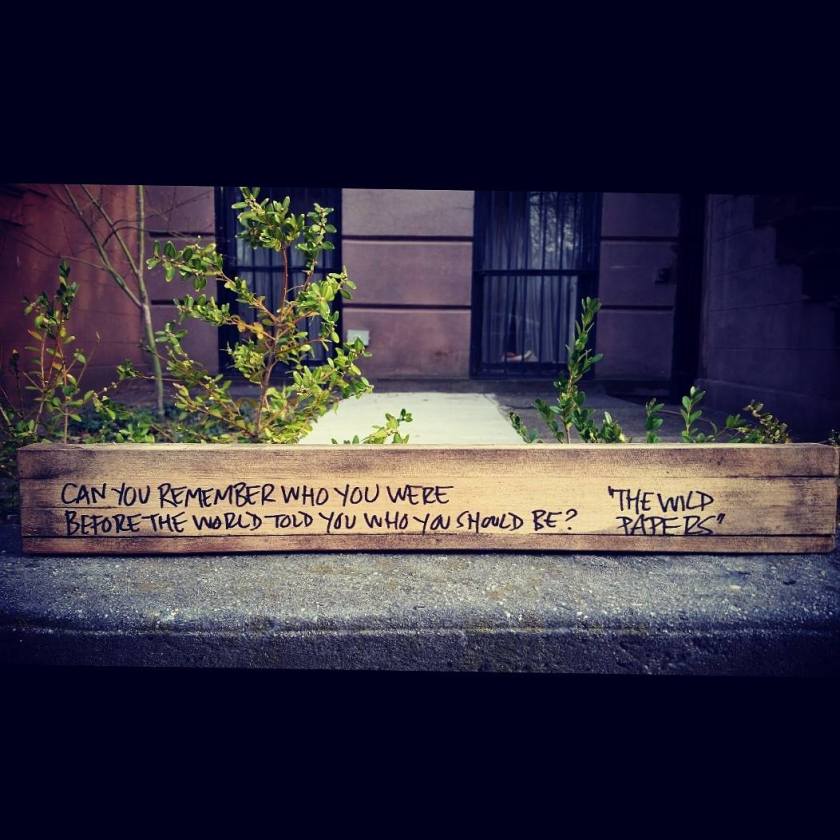 CAN YOU REMEMBER WHO YOU WERE
BEFORE THE WORLD TOLD YOU WHO YOU SHOULD BE?
"THE WILD
PAPERS"